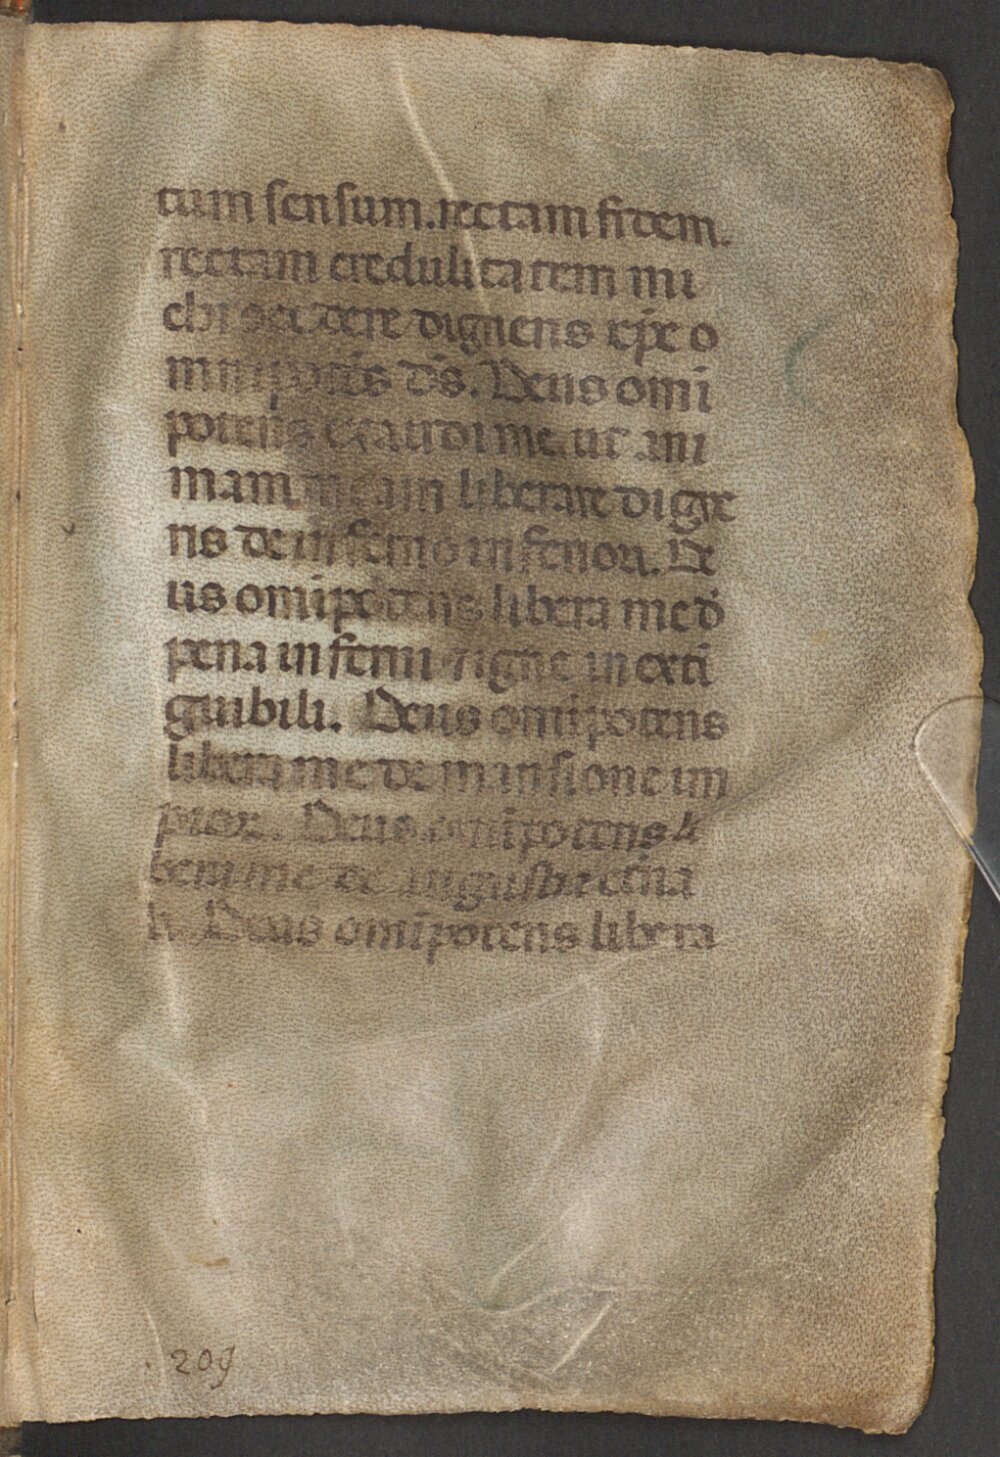 tum sensum. rectam fidem.
rectam credulitatem mi
chi dere digneris xp̄e o
mnipotēs ds̄. Deus omī
potens exaudi me. ut ani
mam meam liberare digne
ris de inferno inferiori. De
us omīpotens libera me d̄
pena inferni ⁊ igne inexti
guibili. Deus omīpotens
libera me de mansione im
pior. Deus omīpotens li
bera me de angustia et̄na
li. Deus omīpotens libera
209